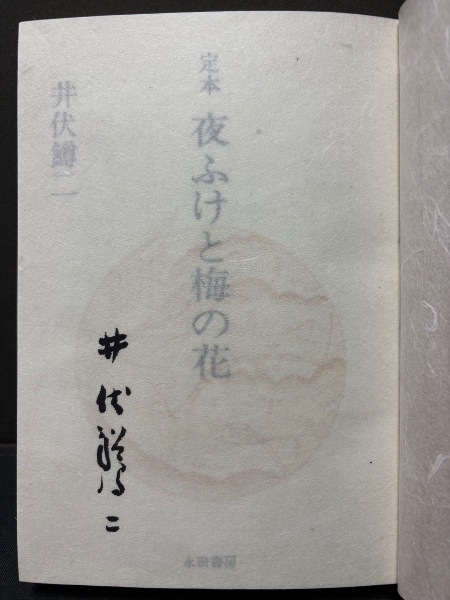 定本
夜ふけと梅の花
井伏鱒二
井伏鱒二
永田書房